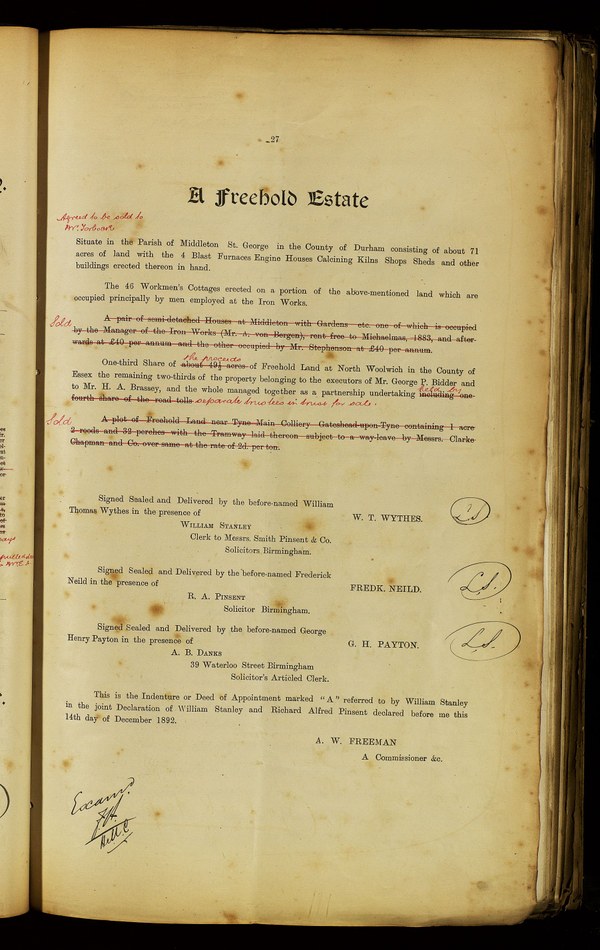 27
A Freehold Estate
Agreed to be sold to
Mr.
Situate in the Parish of Middleton St. George in the County of Durham consisting of about 71
acres of land with the 4 Blast Furnaces Engine Houses Calcining Kilns Shops Sheds and other
buildings erected thereon in hand.
The 46 Workmen's Cottages erected on a portion of the above-mentioned land which are
occupied principally by men employed at the Iron Works.
Sold
A pair of semi-detached Houses at Middleton with Gardens etc. one of which is occupied
by the Manager of the Iron Works (Mr. A. von Bergen), rent free to Michaelmas, 1883, and after-
wards at £40 per annum and the other occupied by Mr. Stephenson at £40 per annum.
the proceeds
One-third Share of about 49½ acres of Freehold Land at North Woolwich in the County of
Essex the remaining two-thirds of the property belonging to the executors of Mr. George P. Bidder and
held by
to Mr. H. A. Brassey, and the whole managed together as a partnership undertaking including one-
fourth share of the road tolls separate trustees in trust for sale.
Sold
A plot of Freehold Land near Tyne Main Colliery Gateshead-upon-Tyne containing 1 acre
2 roods and 32 perches with the Tramway laid thereon subject to a way-leave by Messrs. Clarke
Chapman and Co. over same at the rate of 2d. per ton.
Signed Sealed and Delivered by the before-named William
Thomas Wythes in the presence of
W. T. WYTHES.
LS
William Stanley
Clerk to Messrs. Smith Pinsent & Co.
Solicitors Birmingham.
Signed Sealed and Delivered by the before-named Frederick
Neild in the presence of
FREDK. NEILD.
L.S.
R. A. Pinsent
Solicitor Birmingham.
Signed Sealed and Delivered by the before-named George
Henry Payton in the presence of
G. H. PAYTON.
L.S.
A. B. Danks
39 Waterloo Street Birmingham
Solicitor's Articled Clerk.
This is the Indenture or Deed of Appointment marked "A" referred to by William Stanley
in the joint Declaration of William Stanley and Richard Alfred Pinsent declared before me this
14th day of December 1892.
A. W. FREEMAN
A Commissioner &c.
Examd.